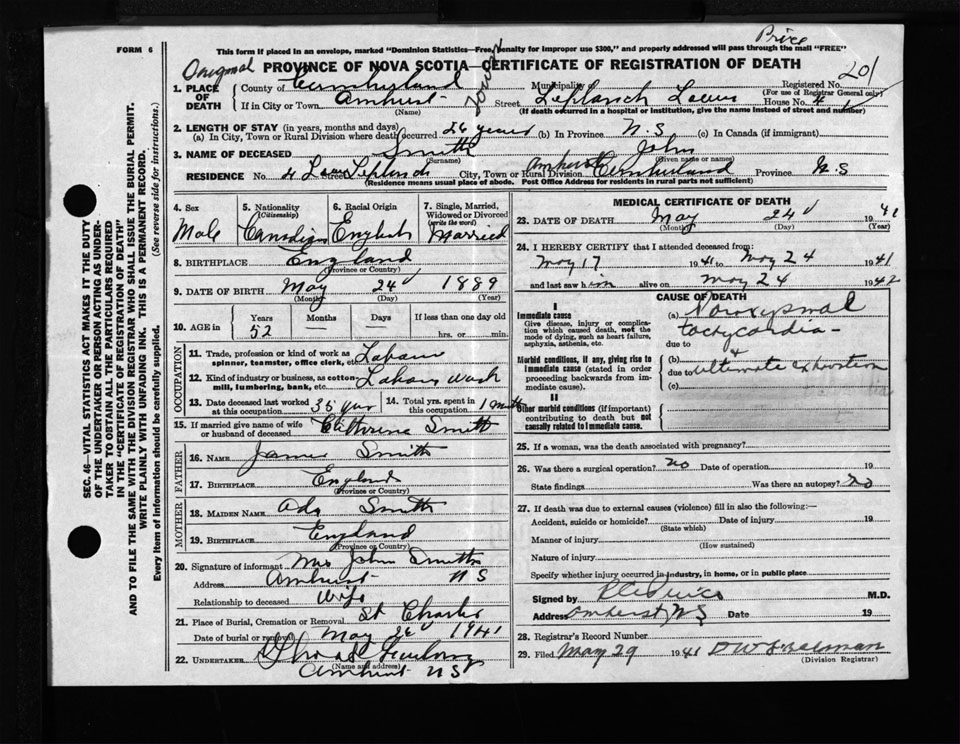 Price
FORM 6
This form if placed in an envelope, marked "Dominion Statistics—Free, Penalty for improper use $300," and properly addressed will pass through the mail "FREE"
Original PROVINCE OF NOVA SCOTIA—CERTIFICATE OF REGISTRATION OF DEATH
Registered No. 201
(For use of Registrar General only)
1. PLACE OF DEATH
County of Cumberland Municipality
If in City or Town Amherst Street House No. 4
(Name) (If death occurred in a hospital or institution, give the name instead of street and number)
2. LENGTH OF STAY (in years, months and days)
(a) In City, Town or Rural Division where death occurred 26 years (b) In Province N.S (c) In Canada (if immigrant)
3. NAME OF DECEASED Smith John
(Surname) (Given name or names)
RESIDENCE No. 4 Street City, Town or Rural Division Amherst Cumberland Province N.S
(Residence means usual place of abode. Post Office Address for residents in rural parts not sufficient)
4. Sex Male
5. Nationality (Citizenship) Canadian
6. Racial Origin English
7. Single, Married, Widowed or Divorced (write the word) Married
8. BIRTHPLACE England
(Province or Country)
9. DATE OF BIRTH May 24 1889
(Month) (Day) (Year)
10. AGE in Years Months Days If less than one day
52 hrs. or min.
OCCUPATION
11. Trade, profession or kind of work as spinner, teamster, office clerk, etc.
12. Kind of industry or business, as cotton mill, lumbering, bank, etc.
13. Date deceased last worked at this occupation 14. Total yrs. spent in this occupation
15. If married give name of wife or husband of deceased Smith
FATHER
16. NAME James Smith
17. BIRTHPLACE England
(Province or Country)
MOTHER
18. MAIDEN NAME Ada Smith
19. BIRTHPLACE England
(Province or Country)
20. Signature of informant Mrs John Smith
Address Amherst N S
Relationship to deceased Wife
21. Place of Burial, Cremation or Removal St Charles
Date of burial or removal May 1941
22. UNDERTAKER
(Name and address)
Amherst N S
MEDICAL CERTIFICATE OF DEATH
23. DATE OF DEATH May 24 1941
(Month) (Day) (Year)
24. I HEREBY CERTIFY that I attended deceased from:
May 17 1941 to May 24 1941
and last saw him alive on May 24 1942
CAUSE OF DEATH
I
Immediate cause
Give disease, injury or complication which caused death, not the mode of dying, such as heart failure, asphyxia, asthenia, etc.
(a) tachycardia
due to
Morbid conditions, if any, giving rise to immediate cause (stated in order proceeding backwards from immediate cause).
(b) &
due to ultimate exhaustion
(c)
II
Other morbid conditions (if important) contributing to death but not causally related to immediate cause.
25. If a woman, was the death associated with pregnancy?
26. Was there a surgical operation? no Date of operation 19
State findings Was there an autopsy? no
27. If death was due to external causes (violence) fill in also the following:—
Accident, suicide or homicide? Date of injury 19
(State which)
Manner of injury
(How sustained)
Nature of injury
Specify whether injury occurred in industry, in home, or in public place
Signed by M.D.
Address Amherst, N S Date 19
28. Registrar's Record Number
29. Filed May 29 1941
(Division Registrar)
SEC. 46—VITAL STATISTICS ACT MAKES IT THE DUTY
OF THE UNDERTAKER OR PERSON ACTING AS UNDER-
TAKER TO OBTAIN ALL THE PARTICULARS REQUIRED
IN THE "CERTIFICATE OF REGISTRATION OF DEATH"
AND TO FILE THE SAME WITH THE DIVISION REGISTRAR WHO SHALL ISSUE THE BURIAL PERMIT.
WRITE PLAINLY WITH UNFADING INK. THIS IS A PERMANENT RECORD.
Every item of Information should be carefully supplied. (See reverse side for instructions.)